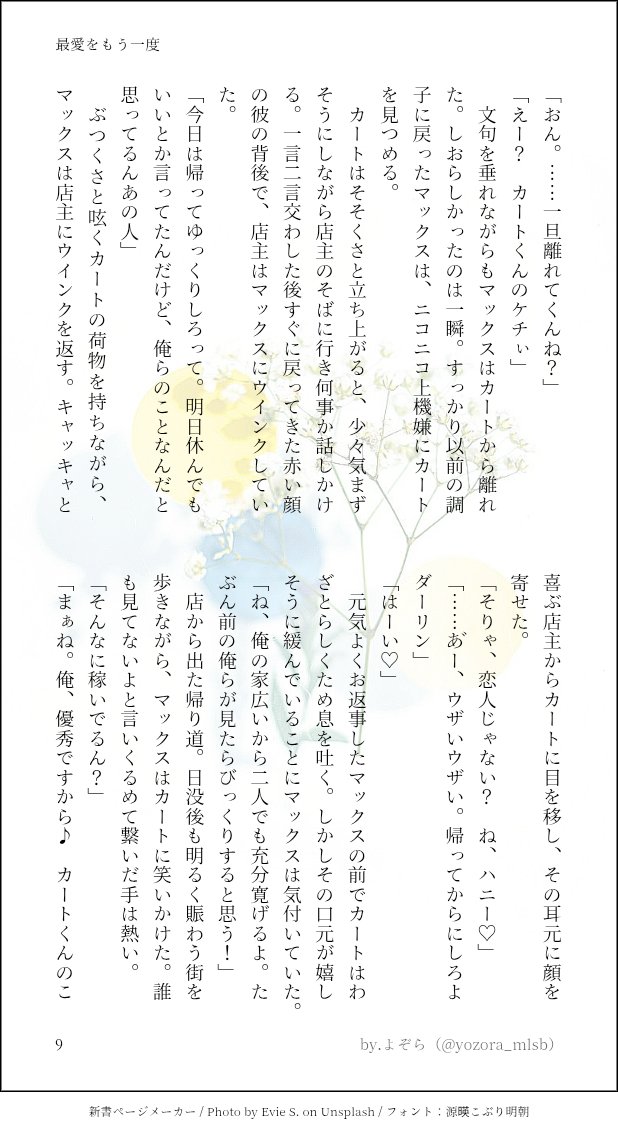 最愛をもう一度
「おん。……一旦離れてくんね？」
「えー？　カートくんのケチぃ」
　文句を垂れながらもマックスはカートから離れ
た。しおらしかったのは一瞬。すっかり以前の調
子に戻ったマックスは、ニコニコ上機嫌にカート
を見つめる。
　カートはそそくさと立ち上がると、少々気まず
そうにしながら店主のそばに行き何事か話しかけ
る。一言二言交わした後すぐに戻ってきた赤い顔
の彼の背後で、店主はマックスにウインクしてい
た。
「今日は帰ってゆっくりしろって。明日休んでも
いいとか言ってたんだけど、俺らのことなんだと
思ってるんあの人」
　ぶつくさと呟くカートの荷物を持ちながら、
マックスは店主にウインクを返す。キャッキャと
喜ぶ店主からカートに目を移し、その耳元に顔を
寄せた。
「そりゃ、恋人じゃない？　ね、ハニー♡」
「……あ゙ー、ウザいウザい。帰ってからにしろよ
ダーリン」
「はーい♡」
　元気よくお返事したマックスの前でカートはわ
ざとらしくため息を吐く。しかしその口元が嬉し
そうに緩んでいることにマックスは気付いていた。
「ね、俺の家広いから二人でも充分寛げるよ。た
ぶん前の俺らが見たらびっくりすると思う！」
　店から出た帰り道。日没後も明るく賑わう街を
歩きながら、マックスはカートに笑いかけた。誰
も見てないよと言いくるめて繋いだ手は熱い。
「そんなに稼いでるん？」
「まぁね。俺、優秀ですから♪　カートくんのこ
9
by.よぞら（@yozora_mlsb）
新書ページメーカー / Photo by Evie S. on Unsplash / フォント：源暎こぶり明朝